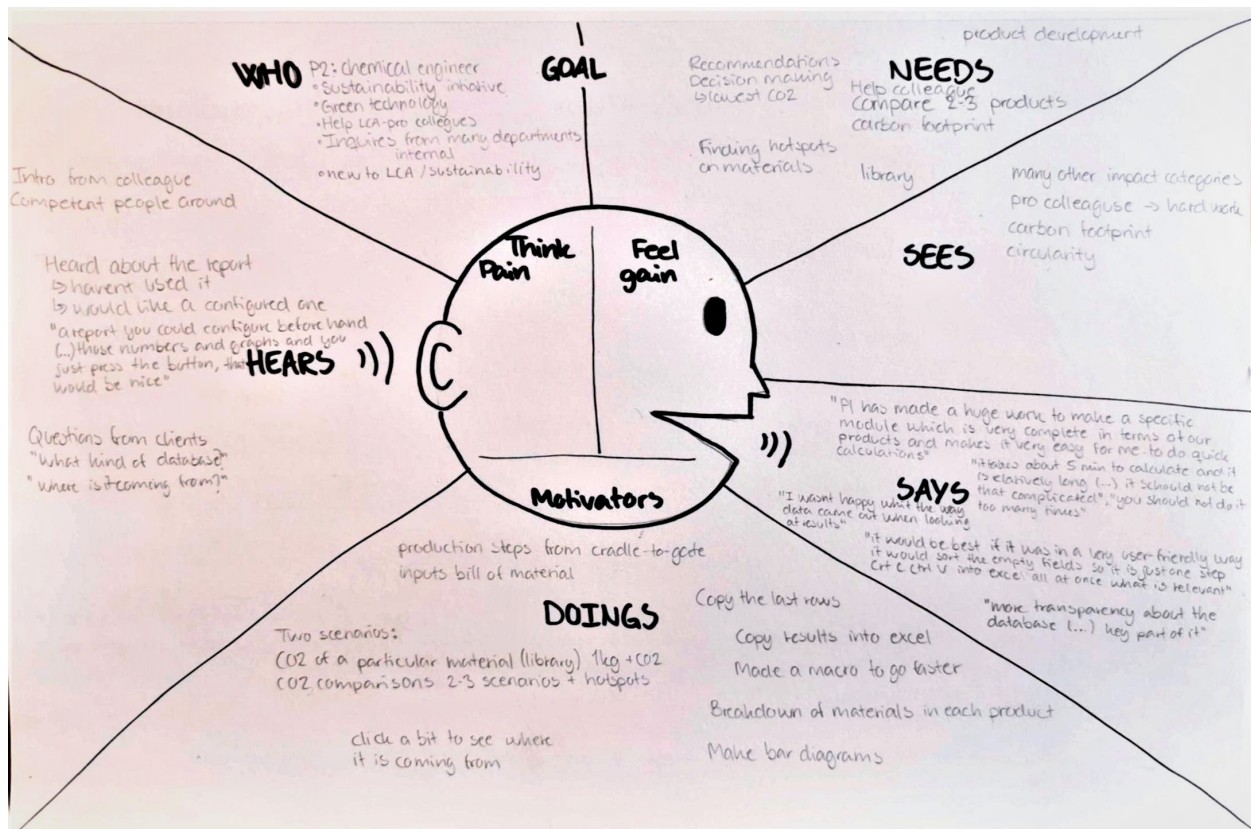 WHO
P2: chemical engineer
•Sustainability initiative
•Green technology
•Help LCA-pro collegues
•Inquires from many departments
internal
•new to LCA/sustainability
GOAL
Recommendations
Decision making
↳lowest CO2
Finding hotspots
on materials
product development
NEEDS
Help colleague
Compare 2-3 products
carbon footprint
library
many other impact categories
pro colleaguse → hard work
carbon footprint
circularity
SEES
Intro from colleague
Competent people around
Heard about the report
↳ havent used it
↳ would like a configured one
"a report you could configure before hand
(...) those numbers and graphs and you
just press the button, that
would be nice"
HEARS
Questions from clients
"What kind of database?"
"where is it coming from?"
Think
Pain
Feel
gain
Motivators
"P1 has made a huge work to make a specific
module which is very complete in terms of our
products and makes it very easy for me to do quick
calculations"
"it takes about 5 min to calculate and it
is relatively long (...) it schould not be
that complicated", "you should not do it
too many times"
SAYS
"I wasnt happy whit the way
data came out when looking
at results"
"it would be best if it was in a very user-friendly way
it would sort the empty fields so it is just one step
Crt C Ctrl V into excel all at once what is relevant"
"more transparency about the
database (...) key part of it"
production steps from cradle-to-gate
inputs bill of material
DOINGS
Two scenarios:
CO2 of a particular material (library) 1kg + CO2
CO2 comparisons 2-3 scenarios + hotspots
click a bit to see where
it is coming from
Copy the last rows
Copy results into excel
Made a macro to go faster
Breakdown of materials in each product
Make bar diagrams